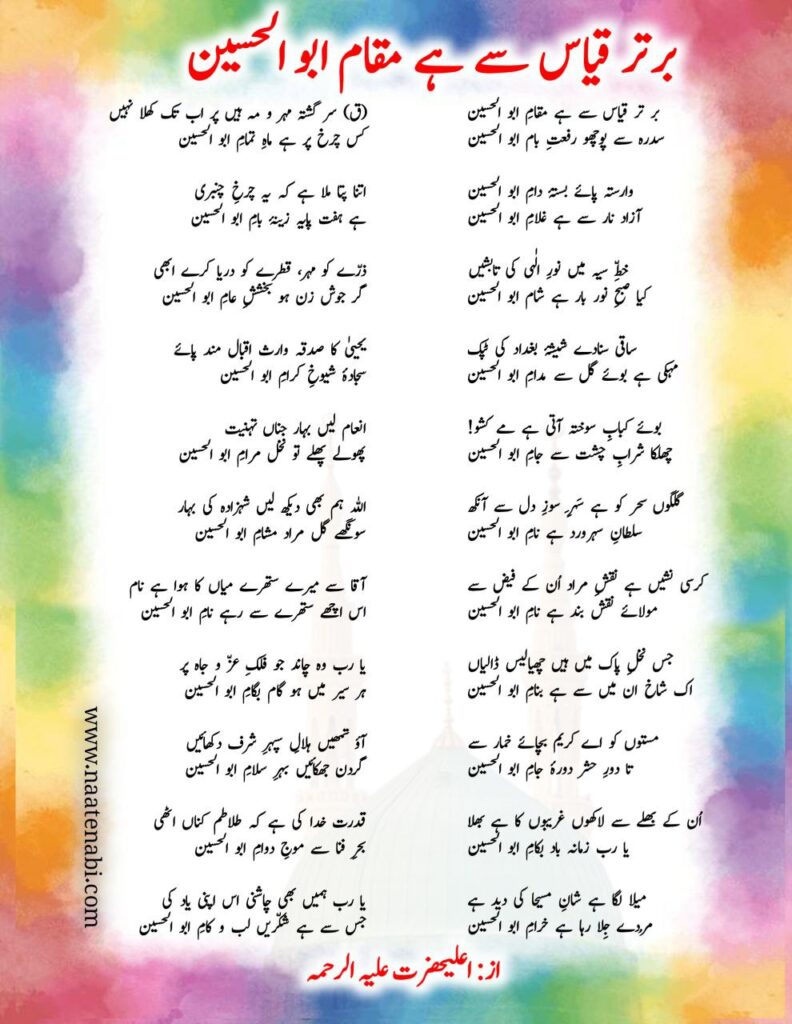 برتر قیاس سے ہے مقام ابوالحسین
بر تر قیاس سے ہے مقامِ ابو الحسین
سدرہ سے پوچھو رفعتِ بامِ ابو الحسین
وارستہ پائے بستۂ دامِ ابو الحسین
آزاد نار سے ہے غلامِ ابو الحسین
خطِّ سیہ میں نورِ الٰہی کی تابشیں
کیا صبحِ نور بار ہے شام ابو الحسین
ساقی سنادے شیشۂ بغداد کی ٹپک
مہکی ہے بوئے گل سے مدامِ ابو الحسین
بوئے کبابِ سوختہ آتی ہے مے کشو!
چھلکا شرابِ چشت سے جامِ ابو الحسین
گلگوں سحر کو ہے سَہَرِ سوزِ دل سے آنکھ
سلطانِ سہرورد ہے نامِ ابو الحسین
کرسی نشیں ہے نقشِ مراد اُن کے فیض سے
مولائے نقش بند ہے نامِ ابو الحسین
جس نخلِ پاک میں ہیں چھیالیس ڈالیاں
اک شاخ ان میں سے ہے بنامِ ابو الحسین
مستوں کو اے کریم بچائے خمار سے
تا دورِ حشر دورۂ جامِ ابو الحسین
اُن کے بھلے سے لاکھوں غریبوں کا ہے بھلا
یا رب زمانہ باد بکامِ ابو الحسین
میلا لگا ہے شانِ مسیحا کی دید ہے
مردے جِلا رہا ہے خرامِ ابو الحسین
(ق) سر گشتہ مہر و مہ ہیں پر اب تک کھلا نہیں
کس چرخ پر ہے ماہِ تمامِ ابو الحسین
اتنا پتا ملا ہے کہ یہ چرخِ چنبری
ہے ہفت پایہ زینۂ بامِ ابو الحسین
ذرّے کو مہر، قطرے کو دریا کرے ابھی
گر جوش زن ہو بخششِ عامِ ابو الحسین
یحییٰ کا صدقہ وارث اقبال مند پائے
سجادۂ شیوخِ کرامِ ابو الحسین
انعام لیں بہار جناں تہنیت
پھولے پھلے تو نخل مرامِ ابو الحسین
اللہ ہم بھی دیکھ لیں شہزادہ کی بہار
سونگھے گل مراد مشامِ ابو الحسین
آقا سے میرے ستھرے میاں کا ہوا ہے نام
اس اچھے ستھرے سے رہے نامِ ابو الحسین
یا رب وہ چاند جو فلکِ عزّ و جاہ پر
ہر سیر میں ہو گام بگامِ ابو الحسین
آؤ تمھیں ہلالِ سپہرِ شرف دکھائیں
گردن جھکائیں بہرِ سلامِ ابو الحسین
قدرت خدا کی ہے کہ طلاطم کناں اٹھی
بحرِ فنا سے موجِ دوامِ ابو الحسین
یا رب ہمیں بھی چاشنی اس اپنی یاد کی
جس سے ہے شکّریں لب و کامِ ابو الحسین
از: اعلیحضرت علیہ الرحمہ
www.naatenabi.com